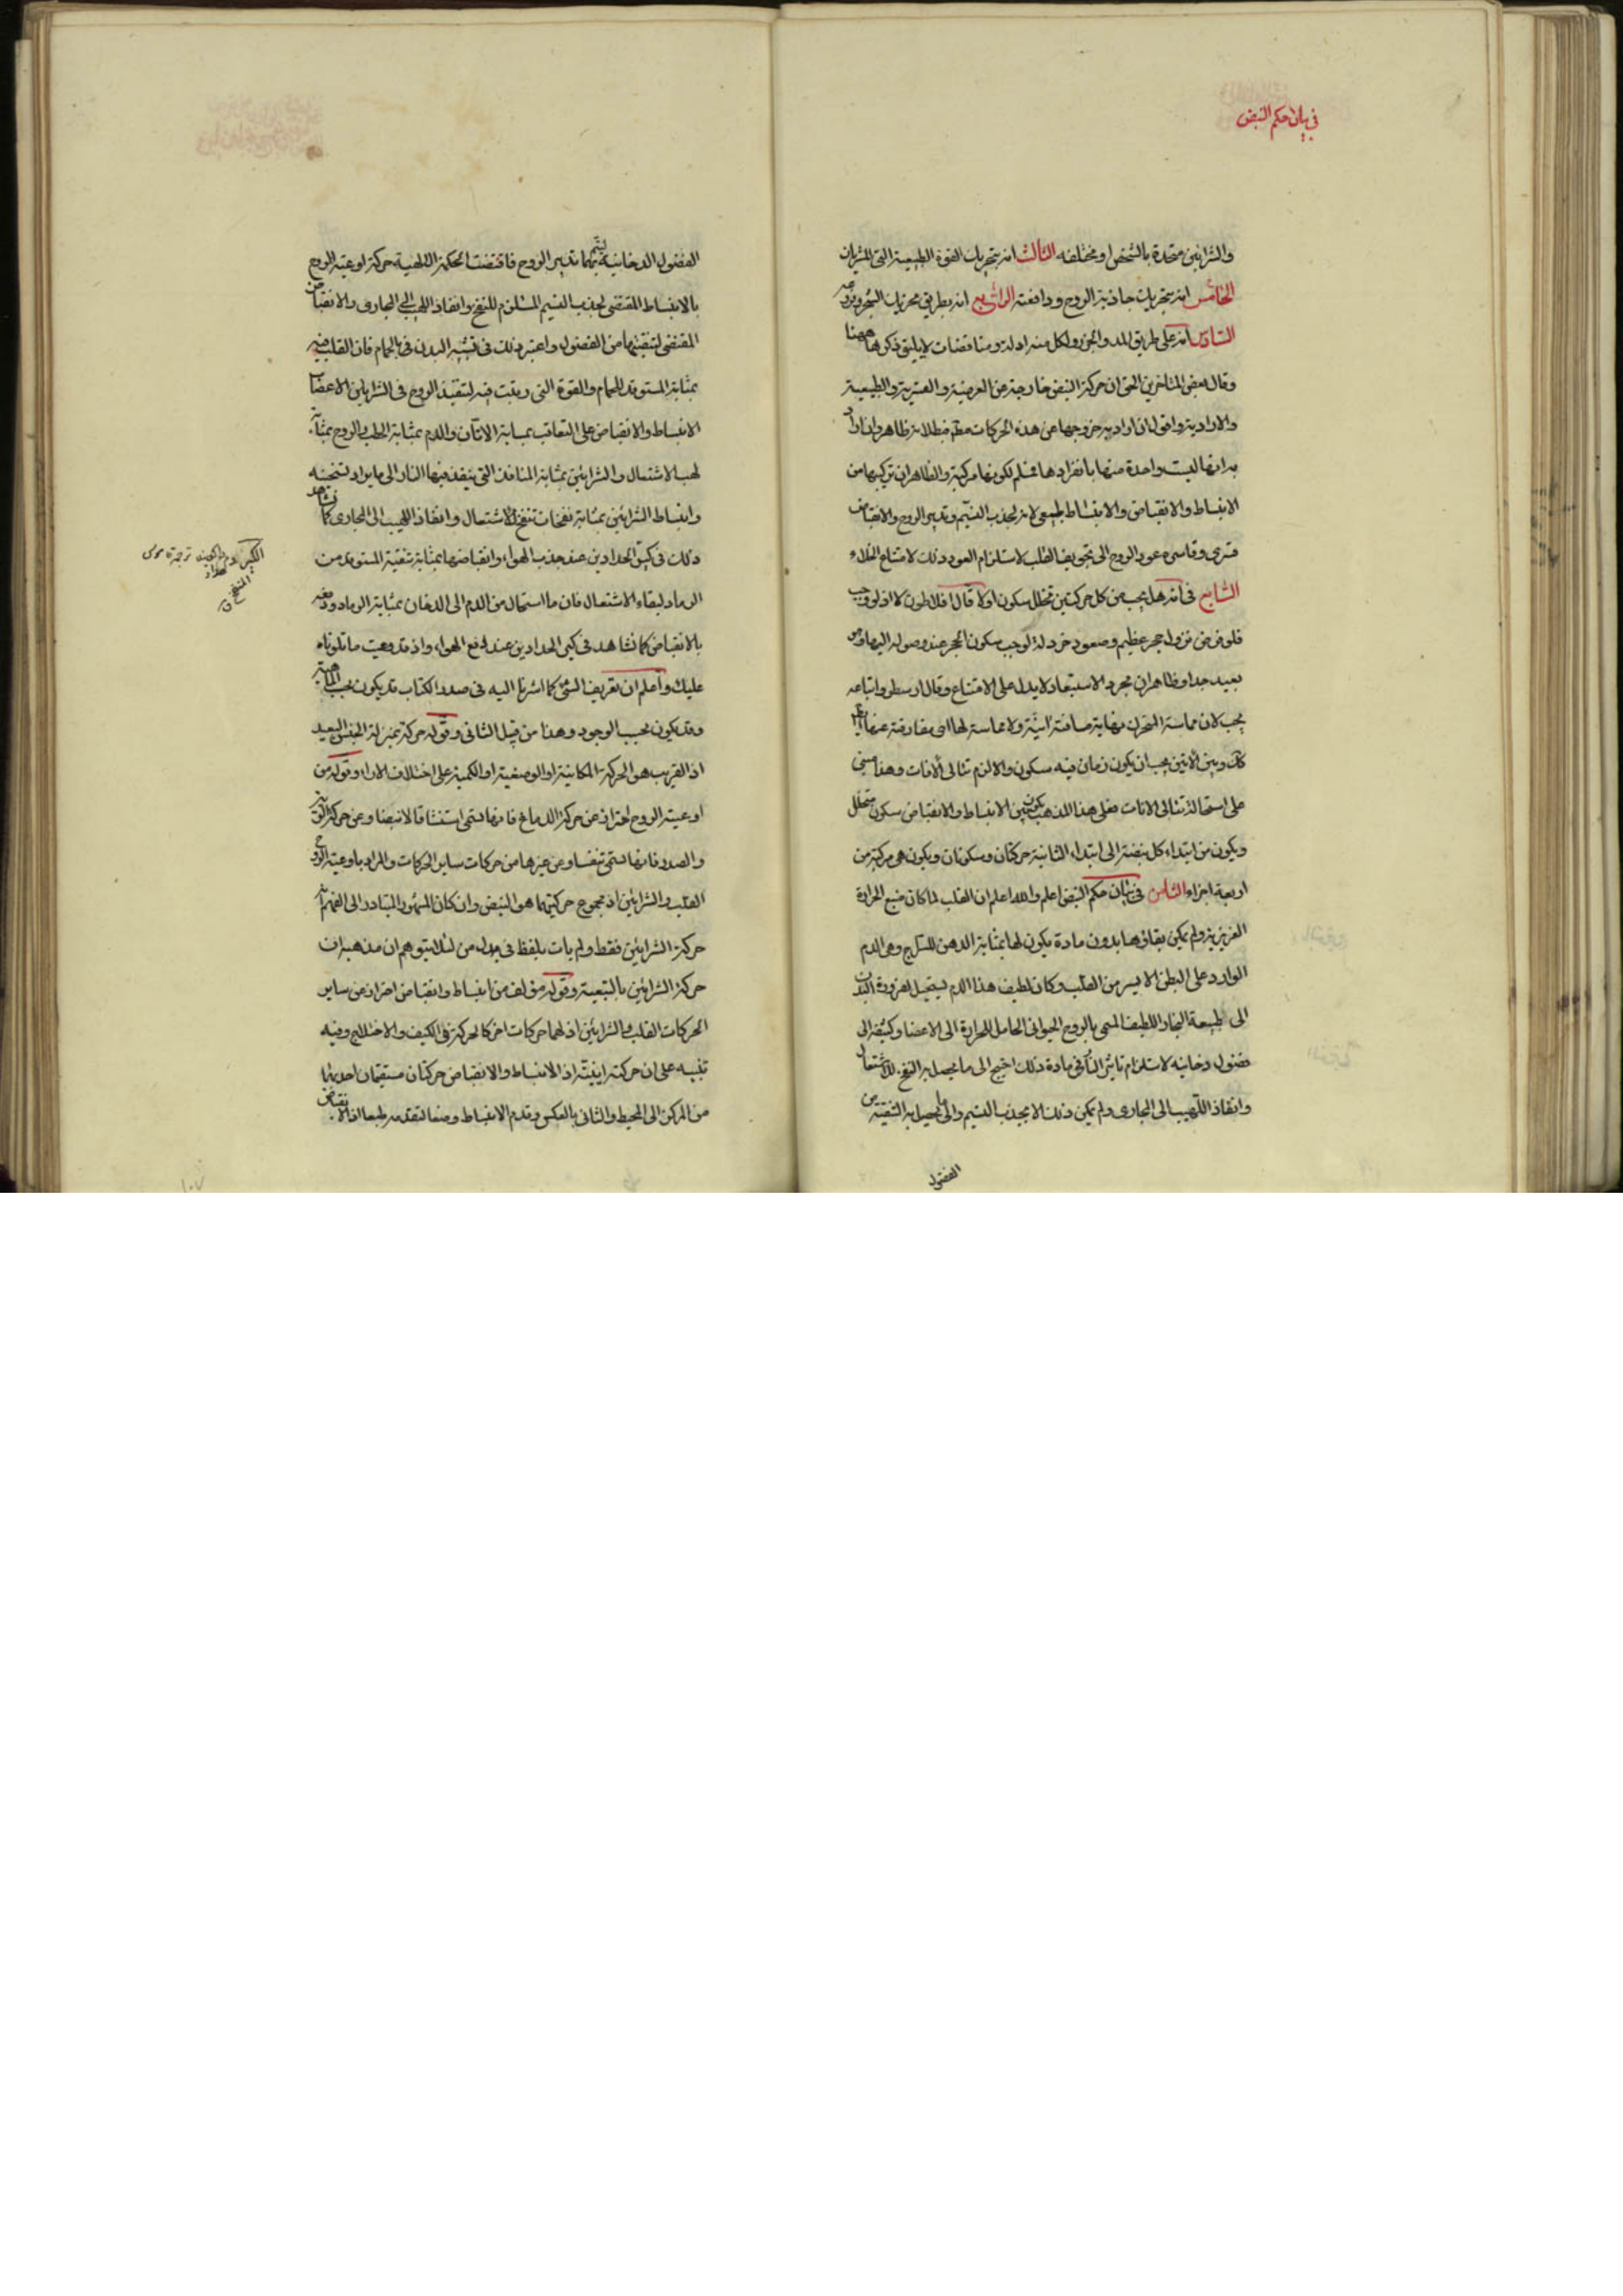 في بيان حكم النبض
والشرايين متحدة بالشخص او مختلفه الثالث انه بتحريك القوة الطبيعية التي للشريان
الخامس انه بتحريك جاذبة الروح ودافعته الرابع انه بطريق تحريك
السادس انه على طريق المد والجزر ولكل منه ادلة ومناقضات لا يليق ذكرها ههنا
وقال بعض المتاخرين الحق ان حركة النبض خارجة عن العرضية والقسرية والطبيعية
والارادية واقول ان اراد به خروجها عن هذه الحركات مطلقا فبطلانه ظاهر وان اراد
به انها ليست واحدة منها بانفرادها فمسلم لكونها مركبة والظاهر ان تركيبها من
الانبساط والانقباض والانبساط طبيعي لانه لجذب النسيم وتدبير الروح والانقباض
قسري وقاسره عود الروح الى تجويف القلب لاستلزام العود ذلك لامتناع الخلاء
السابع في انه هل يجب بين كل حركتين تخلل سكون اولا قال افلاطون لا اذ لو وجب
فلو فرض نزول حجر عظيم وصعود خردلة لوجب سكون الحجر عند وصوله اليها وهو
بعيد جدا وظاهر ان مجرد الاستبعاد لا يدل على الامتناع وقال ارسطو واتباعه
يجب لان مماسة المتحرك نهاية مسافته آنية ولا مماسة لها اي مفارقته عنها ايضا
كك وبين الآنين يجب ان يكون زمان فيه سكون والا لزم تتالي الآنات وهذا مبني
على استحالة تتالى الانات فعلى هذا المذهب يكون بين الانبساط والانقباض سكون متخلل
ويكون من ابتداء كل نبضة الى ابتداء الثانية حركتان وسكونان ويكون هي مركبة من
اربعة اجزاء الثامن في بيان حكم النبض اعلم والله اعلم ان القلب لما كان منبع الحرارة
الغريزية ولم يمكن بقاؤها بدون مادة يكون لها بمثابة الدهن للسراج وهي الدم
الوارد على البطن الايسر من القلب وكان لطيف هذا الدم يستحيل لضرورة البدن
الى طبيعة البخار اللطيف المسمى بالروح الحيواني الحامل للحرارة الى الاعضا وكثيفه الى
فضول دخانيه لاستلزام تاثير النار في مادة ذلك احتيج الى ما يحصل به النفخ للاشتعال
وانفاذ اللهيب الى المجارى ولم يمكن ذلك الا بجذب النسيم والى ما يحصل به التنقية من
الفضول
الفضول الدخانيه ليتم بهما تدبير الروح فاقتضت الحكمة الالهية حركة اوعية الروح
بالانبساط المقتضى لجذب النسيم المستلزم للنفخ وانفاذ اللهيب الى المجارى والانقباض
المقتضى لتنقيتها من الفضول واعتبر ذلك في تشبيه البدن بالحمام فان القلب فيه
بمثابة المستوقد للحمام والقوة التي رتبت فيه لتنفيذ الروح في الشرايين الى الاعضا
الانبساط والانقباض على التعاقب بمثابة الاتان والدم بمثابة الحطب والروح بمثابة
لهب الاشتعال والشرايين بمثابة المنافذ التي ينفذ فيها النار الى ما يراد تسخينه
وانبساط الشرايين بمثابة نفخات تنفخ للاشتعال وانفاذ اللهيب الى المجارى كما نشاهد
ذلك في كير الحدادين عند جذب الهواء وانقباضها بمثابة تنقية المستوقد من
الرماد لبقاء الاشتعال فان ما استحال من الدم الى الدخان بمثابة الرماد ودفعه
بالانقباض كما نشاهد في كير الحدادين عند دفع الهواء واذ قد وعيت ما تلوناه
عليك واعلم ان تعريف الشئ كما اشرنا اليه في صدر الكتاب قد يكون بحسب الماهية
وقد يكون بحسب الوجود وهذا من قبيل الثاني وقوله حركة بمنزلة الجنس البعيد
اذ القريب هو الحركة المكانية او الوضعية او الكمية على اختلاف الاراء وقوله من
اوعية الروح احتراز عن حركة الدماغ فانها تسمى استنشاقا لا نبضا وعن حركة الرئة
والصدر فانها تسمى تنفسا وعن غيرها من حركات ساير الحركات والمراد باوعية الروح
القلب والشرايين اذ مجموع حركتيهما هو النبض وان كان المشهور المتبادر الى الفهم انه
حركة الشرايين فقط ولم يات بلفظ في بدل من لئلا يتوهم ان مذهبه ان
حركة الشرايين بالتبعية وقوله مؤلف من انبساط وانقباض احتراز عن ساير
الحركات القلب والشرايين اذ لهما حركات اخر كالحركة في الكيف والاختلاج وفيه
تنبيه على ان حركته اينية اذ الانبساط والانقباض حركتان مستقيمتان احديهما
من المركز الى المحيط والثاني بالعكس وقدم الانبساط وضعا لتقدمه طبعا اذ الانقباض
١٠٧